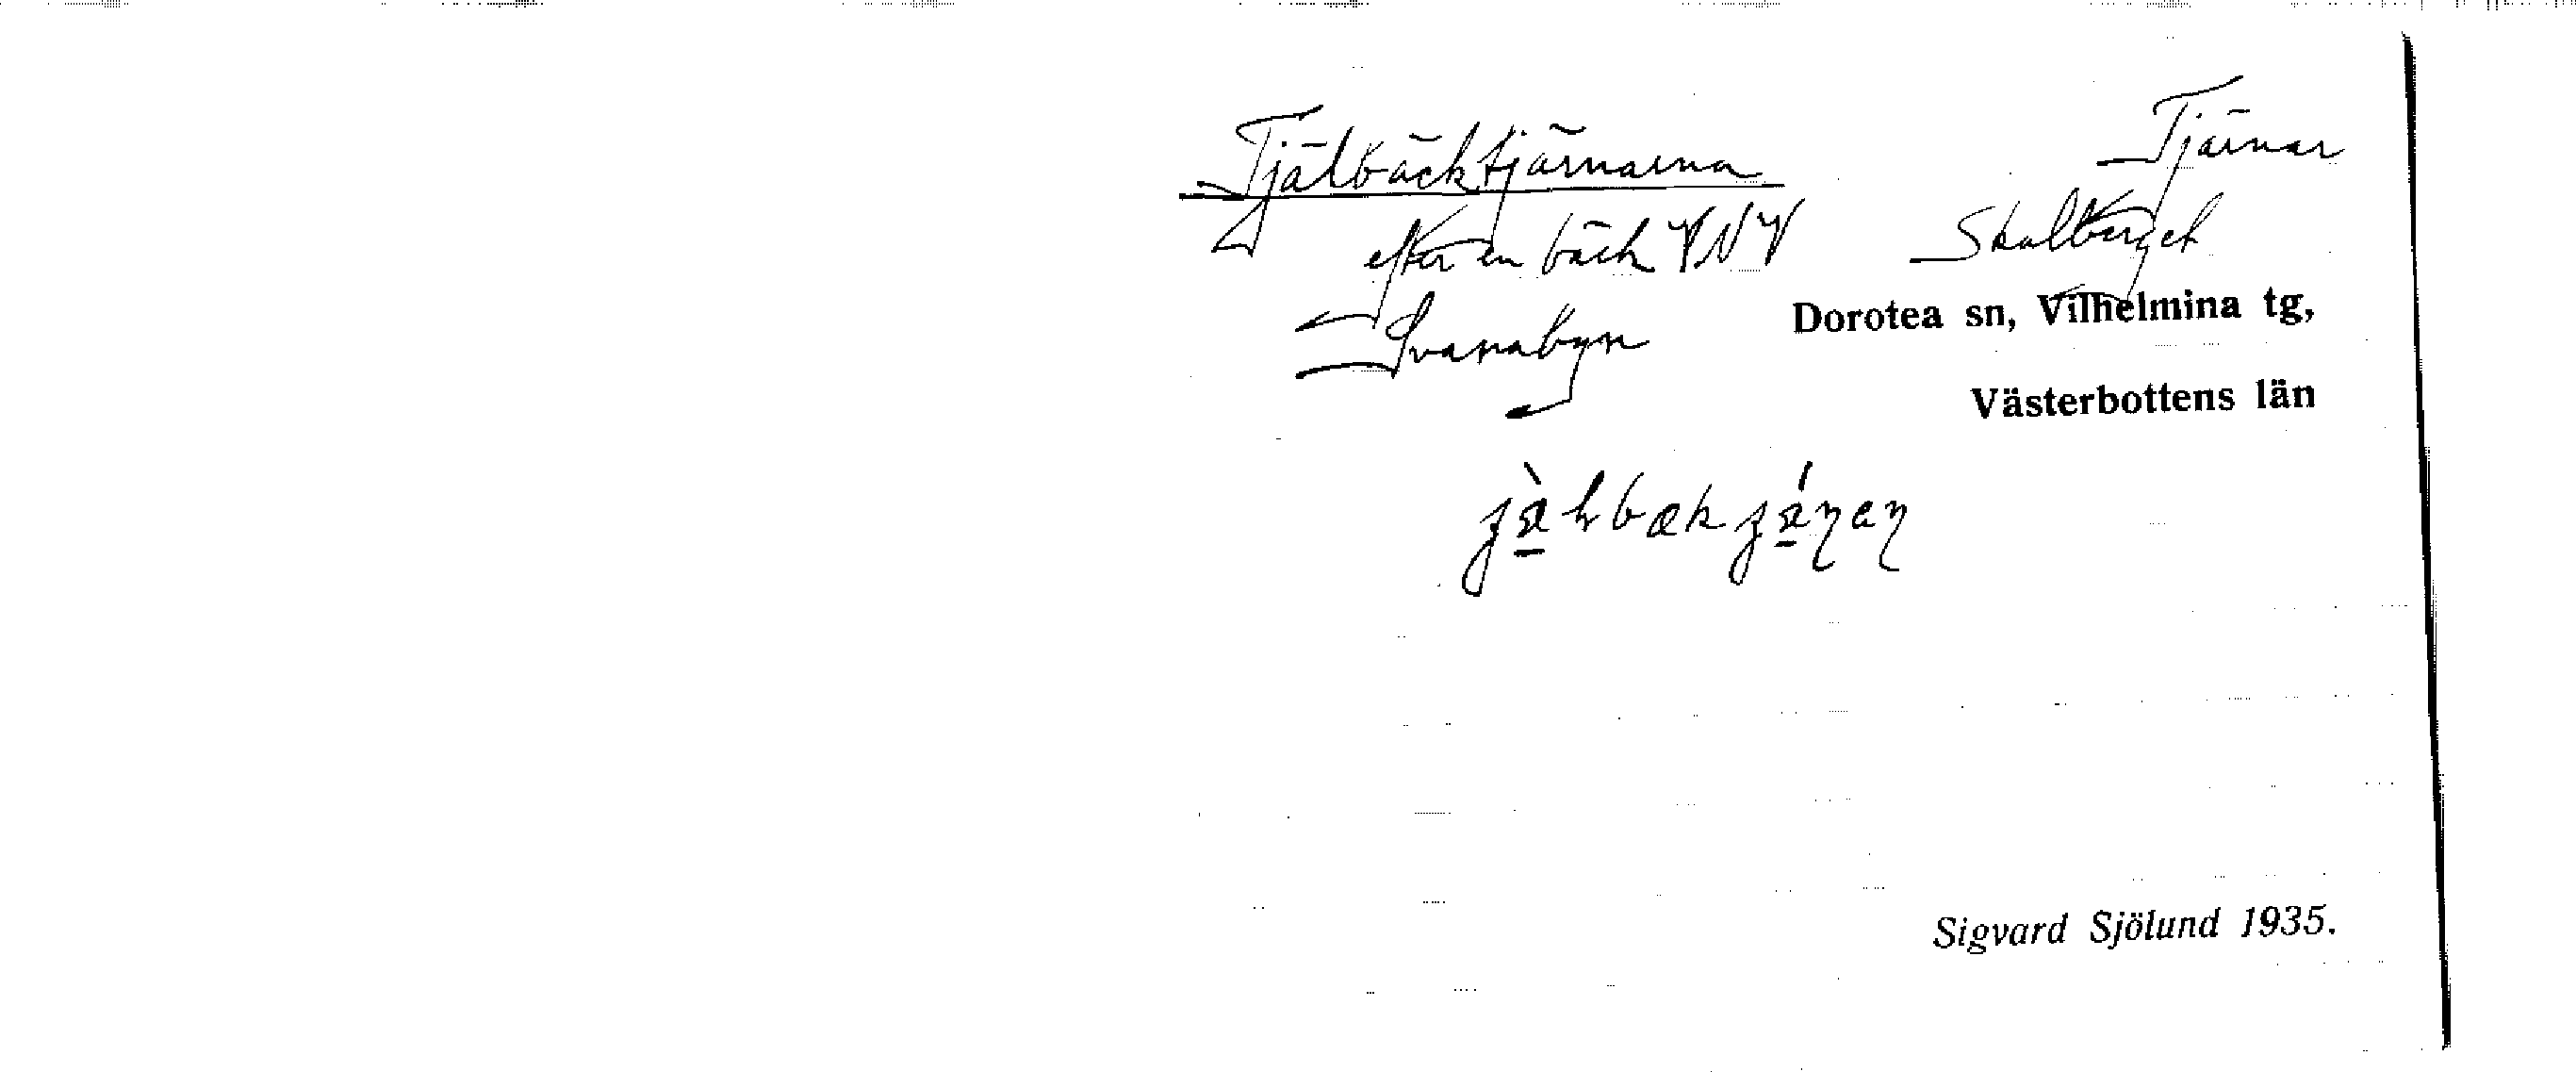 Tjälbäcktjärnarna
Tjärnar
efter en bäck VNV
Skalberget
Svanabyn
Dorotea sn, Vilhelmina tg,
Västerbottens län
Sigvard Sjölund 1935.